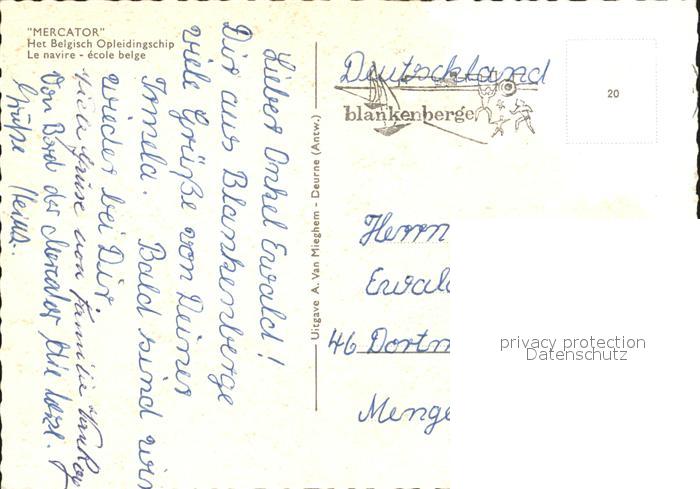 "MERCATOR"
Het Belgisch Opleidingschip
Le navire - école belge
Lieber Onkel Ewald!
Dir aus Blankenberge
viele Grüße von Deiner
Irmela. Bald sind wir
wieder bei Dir
viele Grüsse von Familie
Von Bord der Mercator die
Grüße
Uitgave A. Van Mieghem - Deurne (Antw.)
Deutschland
blankenberge
20
Herrn
Ewal
46 Dortm
Menge
privacy protection
Datenschutz